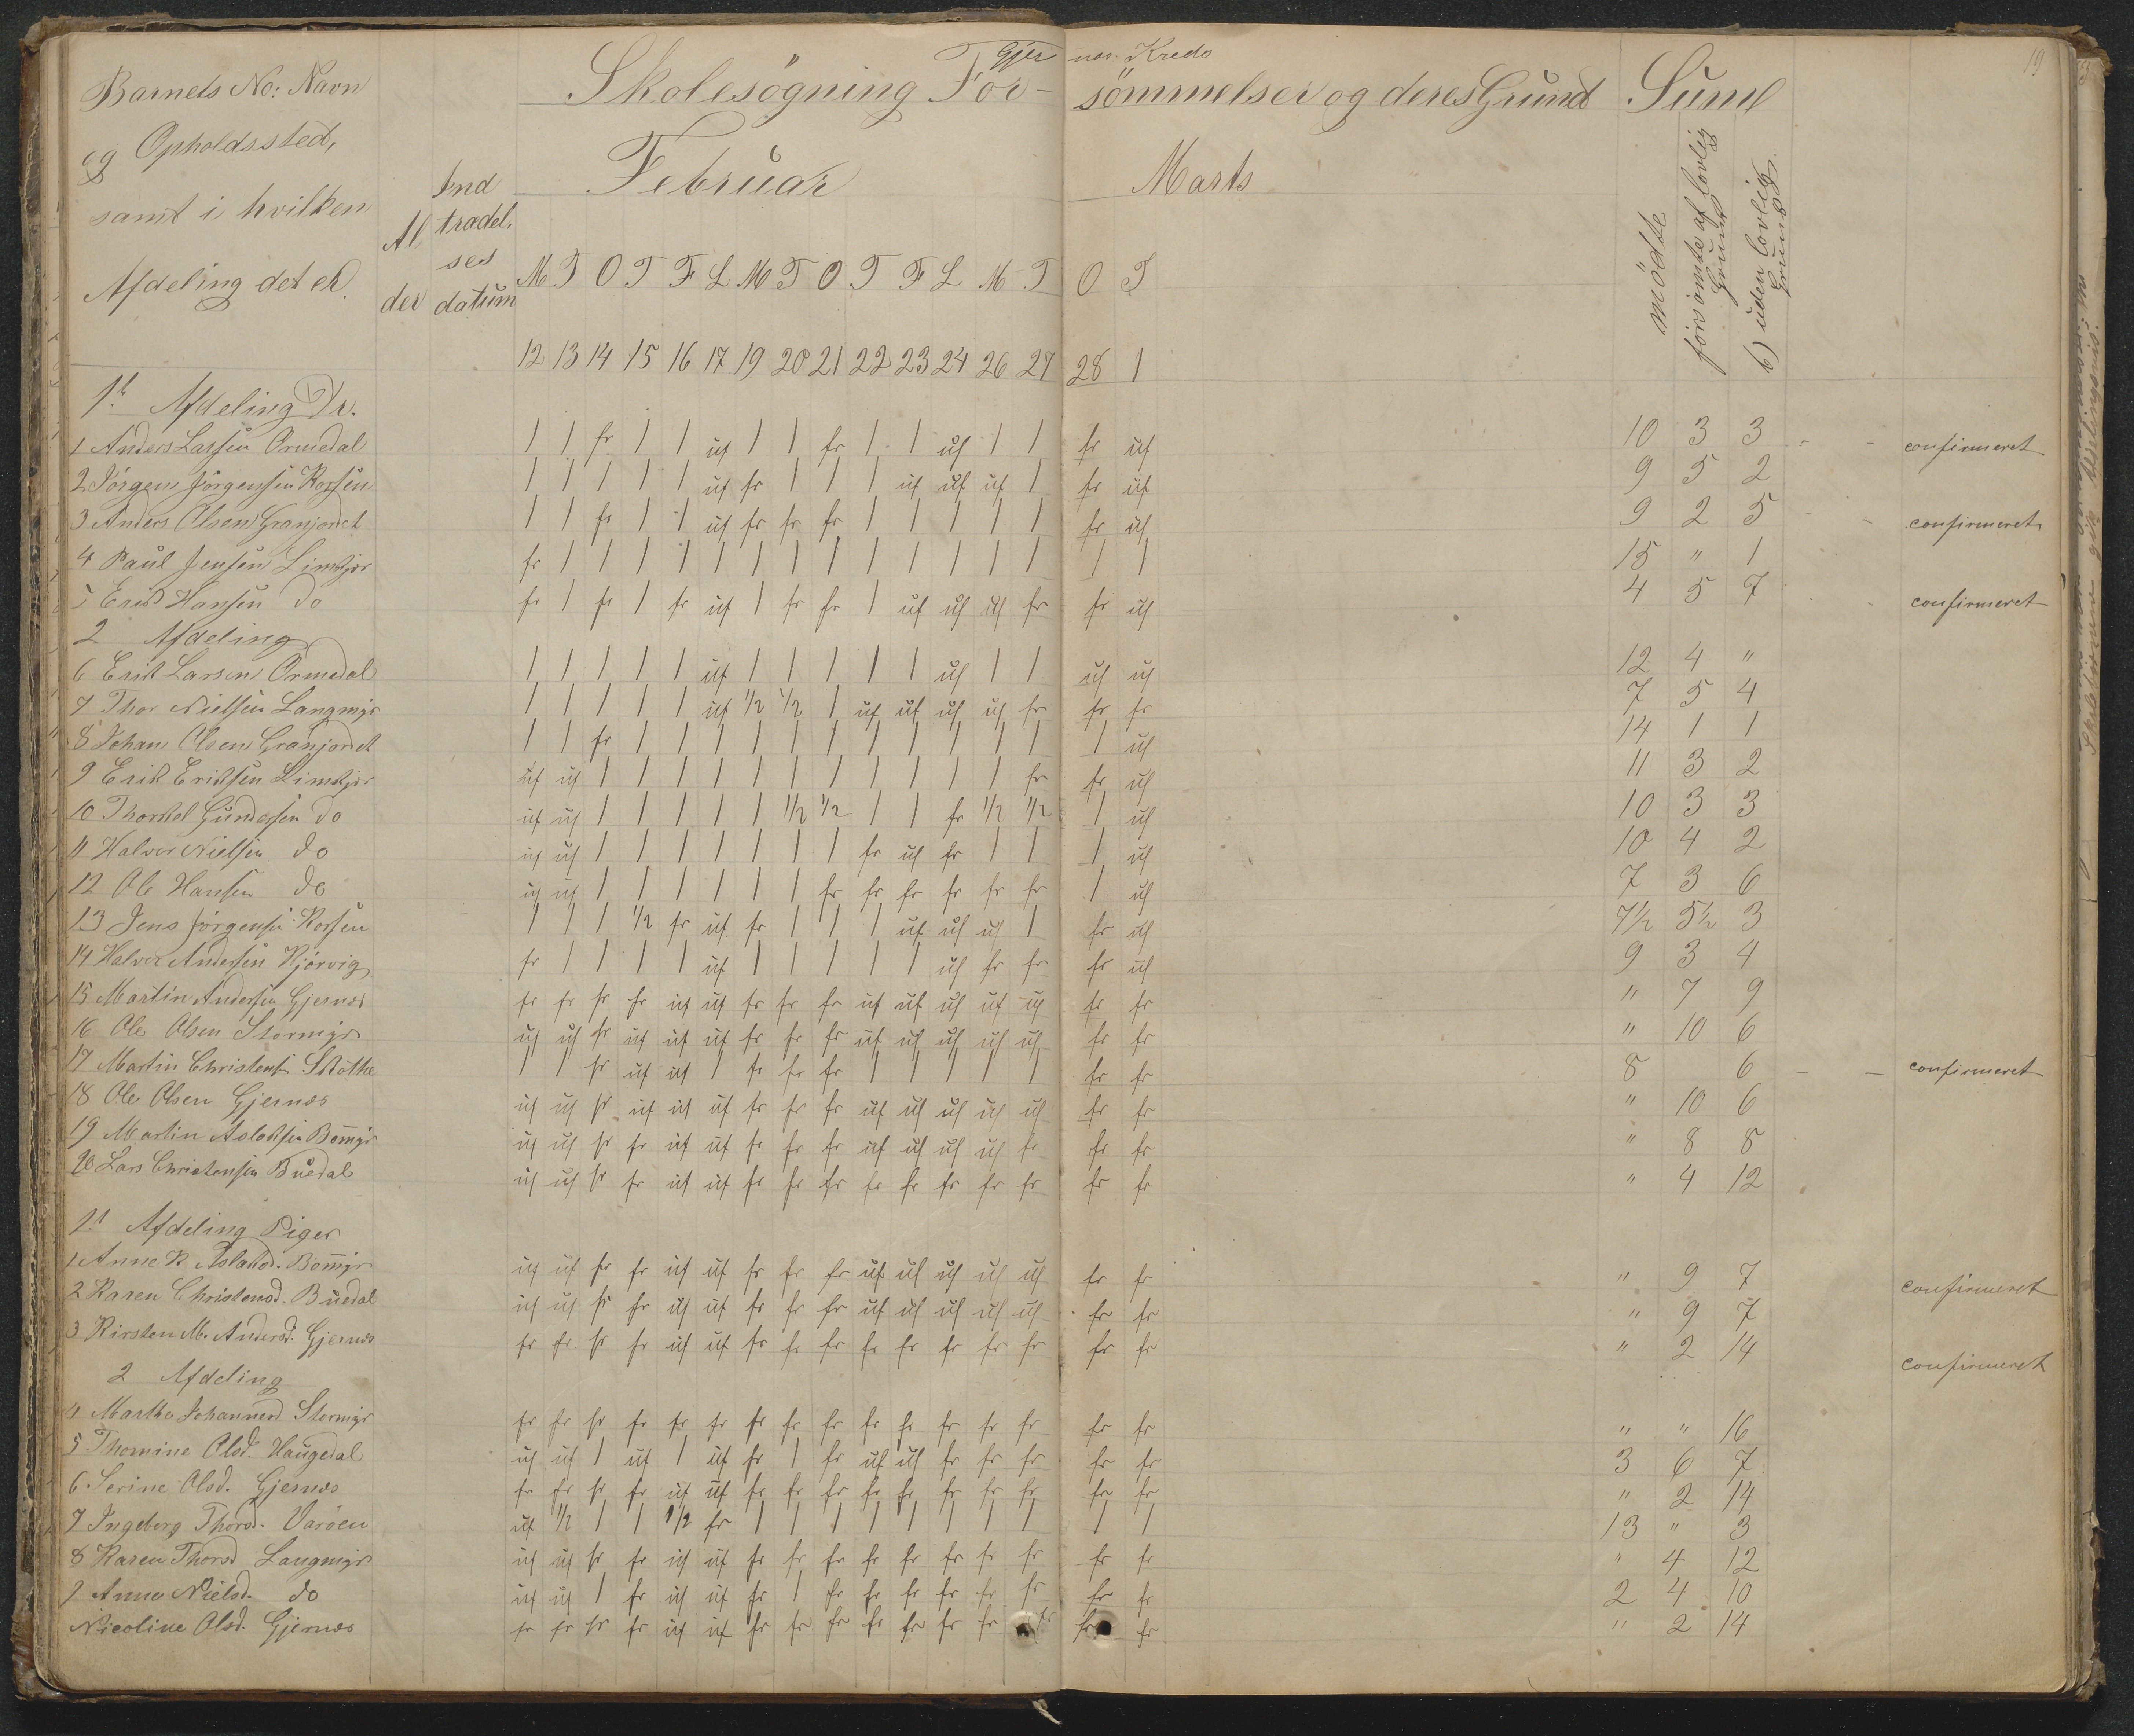 19
Gjer næs Kreds
Barnets No: Navn
og Opholdssted,
samt i hvilken
Afdeling det er.
Al
der
Ind
trædel.
ses
datum
Skolesögning For- sömmelser og deres Grund Sum
Februar Marts
mödte
forsömte af lovlig Grund
b) uden lovlig Grund
M T O T F L M T O T F L M T O T
12 13 14 15 16 17 19 20 21 22 23 24 26 27 28 1
1ste Afdeling Dr.
1 Anders Larsen Ormedal 1 1 fr 1 1 uf 1 1 fr 1 1 uf 1 1 fr uf 10 3 3 - - confirmeret
2 Jörgen Jörgensen Korsen 1 1 1 1 1 uf fr 1 1 1 uf uf uf 1 fr uf 9 5 2
3 Anders Olsen Granjordet 1 1 fr 1 1 uf fr fr fr 1 1 1 1 1 fr uf 9 2 5 - - confirmeret
4 Paul Jensen Limkjær fr 1 1 1 1 1 1 1 1 1 1 1 1 1 1 1 15 " 1
5 Erik Hansen do fr 1 fr 1 fr uf 1 fr fr 1 uf uf uf fr fr uf 4 5 7 confirmeret
2 Afdeling
6 Erik Larsen Ormedal 1 1 1 1 1 uf 1 1 1 1 1 uf 1 1 uf uf 12 4 "
7 Thor Nielsen Langmyr 1 1 1 1 1 uf 1/2 1/2 1 uf uf uf uf fr fr fr 7 5 4
8 Johan Olsen Granjordet 1 1 fr 1 1 1 1 1 1 1 1 1 1 1 1 uf 14 1 1
9 Erik Eriksen Limkjær uf uf 1 1 1 1 1 1 1 1 1 1 1 fr fr uf 11 3 2
10 Thorkel Gundersen do uf uf 1 1 1 1 1 1/2 1/2 1 1 fr 1/2 1/2 1 uf 10 3 3
11 Halvor Nielsen do uf uf 1 1 1 1 1 1 1 fr uf fr 1 1 1 uf 10 4 2
12 Ole Hansen do uf uf 1 1 1 1 1 1 fr fr fr fr fr fr 1 uf 7 3 6
13 Jens Jörgensen Korsen 1 1 1 1/2 fr uf fr 1 1 1 uf uf uf 1 fr uf 7 1/2 5 1/2 3
14 Halvor Andersen Kjörvig fr 1 1 1 1 uf 1 1 1 1 1 uf fr fr fr uf 9 3 4
15 Martin Andersen Gjernæs fr fr fr fr uf uf fr fr fr uf uf uf uf uf fr fr " 7 9
16 Ole Olsen Stormyr uf uf fr uf uf uf fr fr fr uf uf uf uf uf fr fr " 10 6
17 Martin Christens. 1 1 fr uf uf 1 fr fr fr 1 1 1 1 1 fr fr 8 6 - - confirmeret
18 Ole Olsen Gjernæs uf uf fr uf uf uf fr fr fr uf uf uf uf uf fr fr " 10 6
19 Martin Aslaksen Bommyr uf uf fr fr uf uf fr fr fr uf uf uf uf fr fr fr " 8 8
20 Lars Christensen Buedal uf uf fr fr uf uf fr fr fr fr fr fr fr fr fr fr " 4 12
1st Afdeling Piger
1 Anne K. Aslaksd. Bommyr uf uf fr fr uf uf fr fr fr uf uf uf uf uf fr fr " 9 7 confirmeret
2 Karen Christensd. Buedal uf uf fr fr uf uf fr fr fr uf uf uf uf uf fr fr " 9 7
3 Kirsten M. Andersd. Gjernæs fr fr fr fr uf uf fr fr fr fr fr fr fr fr fr fr " 2 14 confirmeret
2 Afdeling
4 Marthe Johannesd. Stormyr fr fr fr fr fr fr fr fr fr fr fr fr fr fr fr fr " " 16
5 Thomine Olsd. Haugedal uf uf 1 uf 1 uf fr 1 fr uf uf fr fr fr fr fr 3 6 7
6 Serine Olsd. Gjernæs fr fr fr fr uf uf fr fr fr fr fr fr fr fr fr fr " 2 14
7 Ingeborg Thorsd. Varöen uf 1/2 1 1 1/2 fr 1 1 1 1 1 1 1 1 1 1 13 " 3
8 Karen Thorsd Langmyr uf uf fr fr uf uf fr fr fr fr fr fr fr fr fr fr " 4 12
9 Anne Nielsd. do uf uf 1 fr uf uf fr 1 fr fr fr fr fr fr fr fr 2 4 10
Nicoline Olsd. Gjernæs fr fr fr fr uf uf fr fr fr fr fr fr fr fr fr fr " 2 14